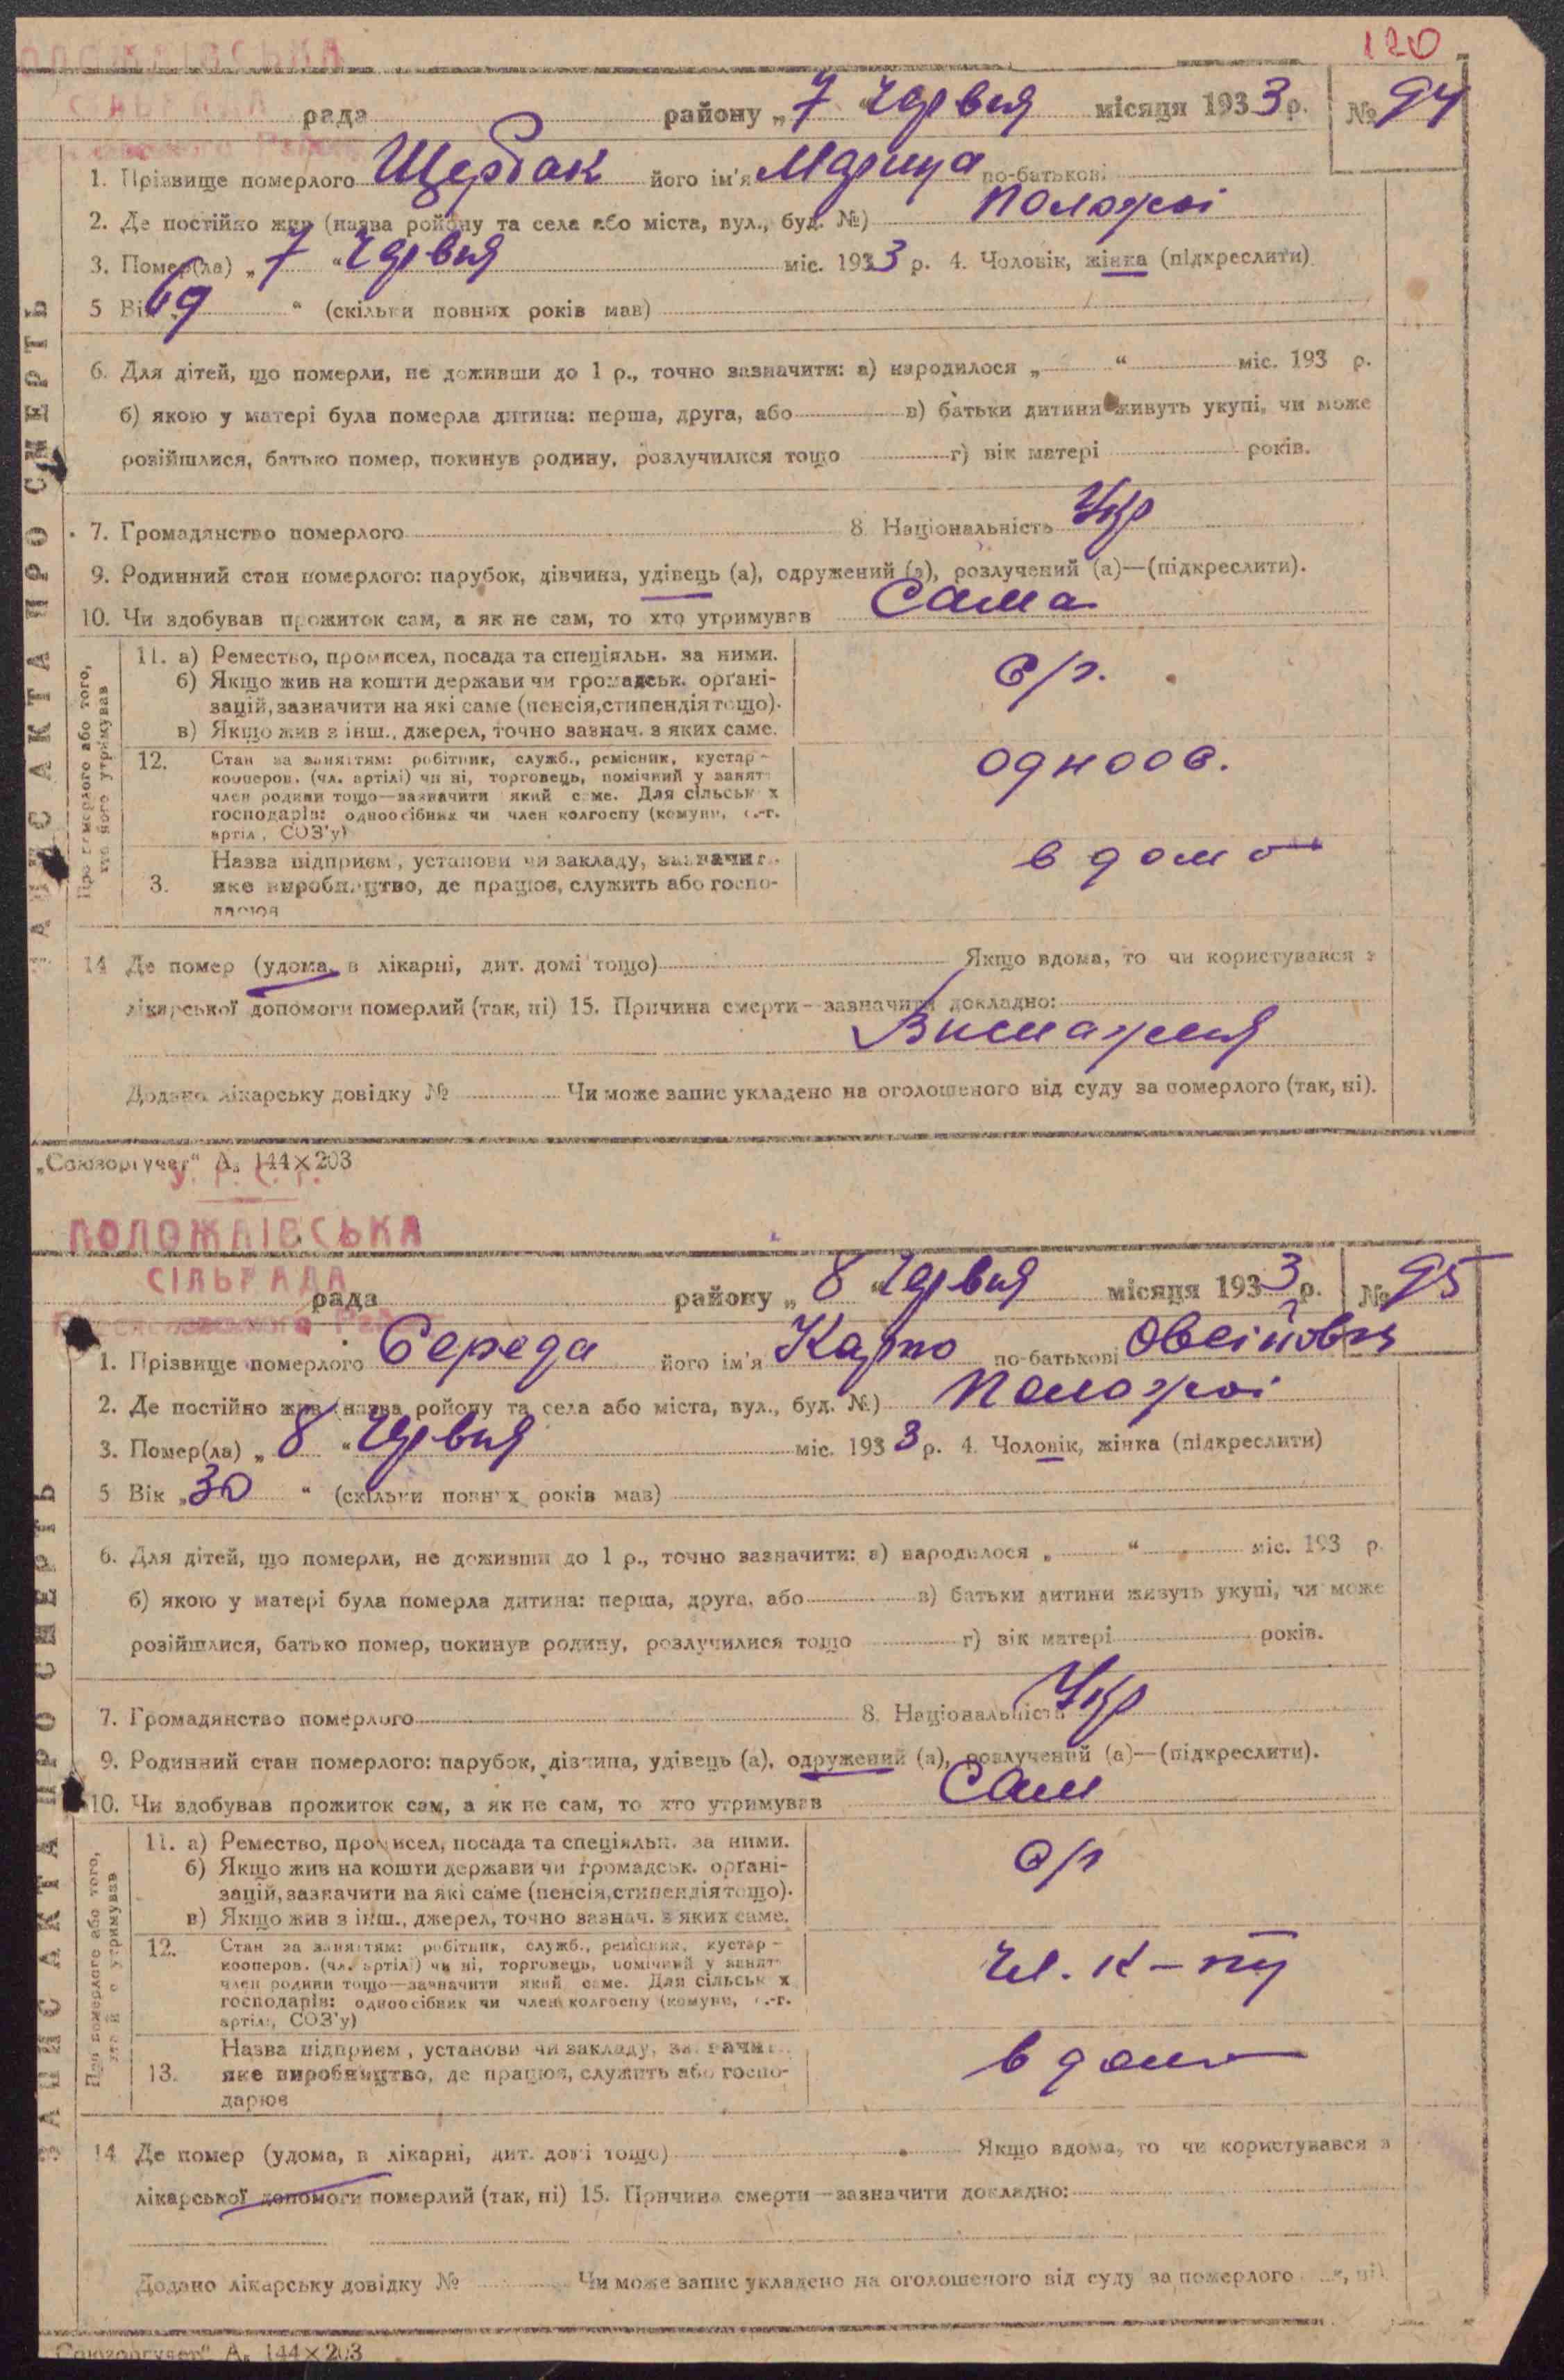 120
ПОЛОЖАІВСЬКА
СІЛЬРАДА
рада району „7“ червня місяця 1933 р. № 94
1. Прізвище померлого Щербак його ім'я Марина по-батькові
2. Де постійно жив (назва ройону та села або міста, вул., буд. №) Положаї
3. Помер(ла) „7“ червня міс. 1933 р. 4. Чоловік, жінка (підкреслити)
5 Вік „69“ (скільки повних років мав)
6. Для дітей, що померли, не доживши до 1 р., точно зазначити: а) народилося „ “ міс. 193 р.
б) якою у матері була померла дитина: перша, друга, або в) батьки дитини живуть укупі, чи може
розійшлися, батько помер, покинув родину, розлучилися тощо г) вік матері років.
7. Громадянство померлого 8. Національність Укр
9. Родинний стан померлого: парубок, дівчина, удівець (а), одружений (а), розлучений (а)—(підкреслити).
10. Чи здобував прожиток сам, а як не сам, то хто утримував Сама
ЗАПИС АКТА ПРО СМЕРТЬ
Про померлого або того,
хто його утримував
11. а) Ремество, промисел, посада та спеціяльн. за ними.
б) Якщо жив на кошти держави чи громадськ. орґані-
зацій, зазначити на які саме (пенсія, стипендія тощо).
в) Якщо жив з інш., джерел, точно зазнач. з яких саме.
с/г.
12. Стан за заняттям: робітник, служб., ремісник, кустар-
кооперов. (чл. артілі) чи ні, торговець, помічний у занятт
член родини тощо—зазначити який саме. Для сільськ х
господарів: одноосібник чи член колгоспу (комуни, с.-г.
артілі, СОЗ'у)
одноос.
3. Назва підприєм., установи чи закладу, зазначит
яке виробництво, де працює, служить або госпо-
дарює
в дома
14 Де помер (удома, в лікарні, дит. домі тощо) Якщо вдома, то чи користувався з
лікарської допомоги померлий (так, ні) 15. Причина смерти—зазначити докладно:
Виснаження
Додано лікарську довідку № Чи може запис укладено на оголошеного від суду за померлого (так, ні).
„Союзоргучет“ А₅ 144×203
У.С.Р.Р.
ПОЛОЖАІВСЬКА
СІЛЬРАДА
рада району „8“ червня місяця 1933 р. № 95
1. Прізвище померлого Середа його ім'я Карпо по-батькові Овсійович
2. Де постійно жив (назва ройону та села або міста, вул., буд. №) Положаї
3. Помер(ла) „8“ червня міс. 1933 р. 4. Чоловік, жінка (підкреслити)
5 Вік „30“ (скільки повних років мав)
6. Для дітей, що померли, не доживши до 1 р., точно зазначити: а) народилося „ “ міс. 193 р.
б) якою у матері була померла дитина: перша, друга, або в) батьки дитини живуть укупі, чи може
розійшлися, батько помер, покинув родину, розлучилися тощо г) вік матері років.
7. Громадянство померлого 8. Національність Укр
9. Родинний стан померлого: парубок, дівчина, удівець (а), одружений (а), розлучений (а)—(підкреслити).
10. Чи здобував прожиток сам, а як не сам, то хто утримував Сам
ЗАПИС АКТА ПРО СМЕРТЬ
Про померлого або того,
хто його утримував
11. а) Ремество, промисел, посада та спеціяльн. за ними.
б) Якщо жив на кошти держави чи громадськ. орґані-
зацій, зазначити на які саме (пенсія, стипендія тощо).
в) Якщо жив з інш., джерел, точно зазнач. з яких саме.
с/г
12. Стан за заняттям: робітник, служб., ремісник, кустар-
кооперов. (чл. артілі) чи ні, торговець, помічний у занятт
член родини тощо—зазначити який саме. Для сільськ х
господарів: одноосібник чи член колгоспу (комуни, с.-г.
артілі, СОЗ'у)
чл. к-пу
13. Назва підприєм., установи чи закладу, зазначит
яке виробництво, де працює, служить або госпо-
дарює
в дома
14 Де помер (удома, в лікарні, дит. домі тощо) Якщо вдома, то чи користувався з
лікарської допомоги померлий (так, ні) 15. Причина смерти—зазначити докладно:
Додано лікарську довідку № Чи може запис укладено на оголошеного від суду за померлого (так, ні)
„Союзоргучет“ А₅ 144×203